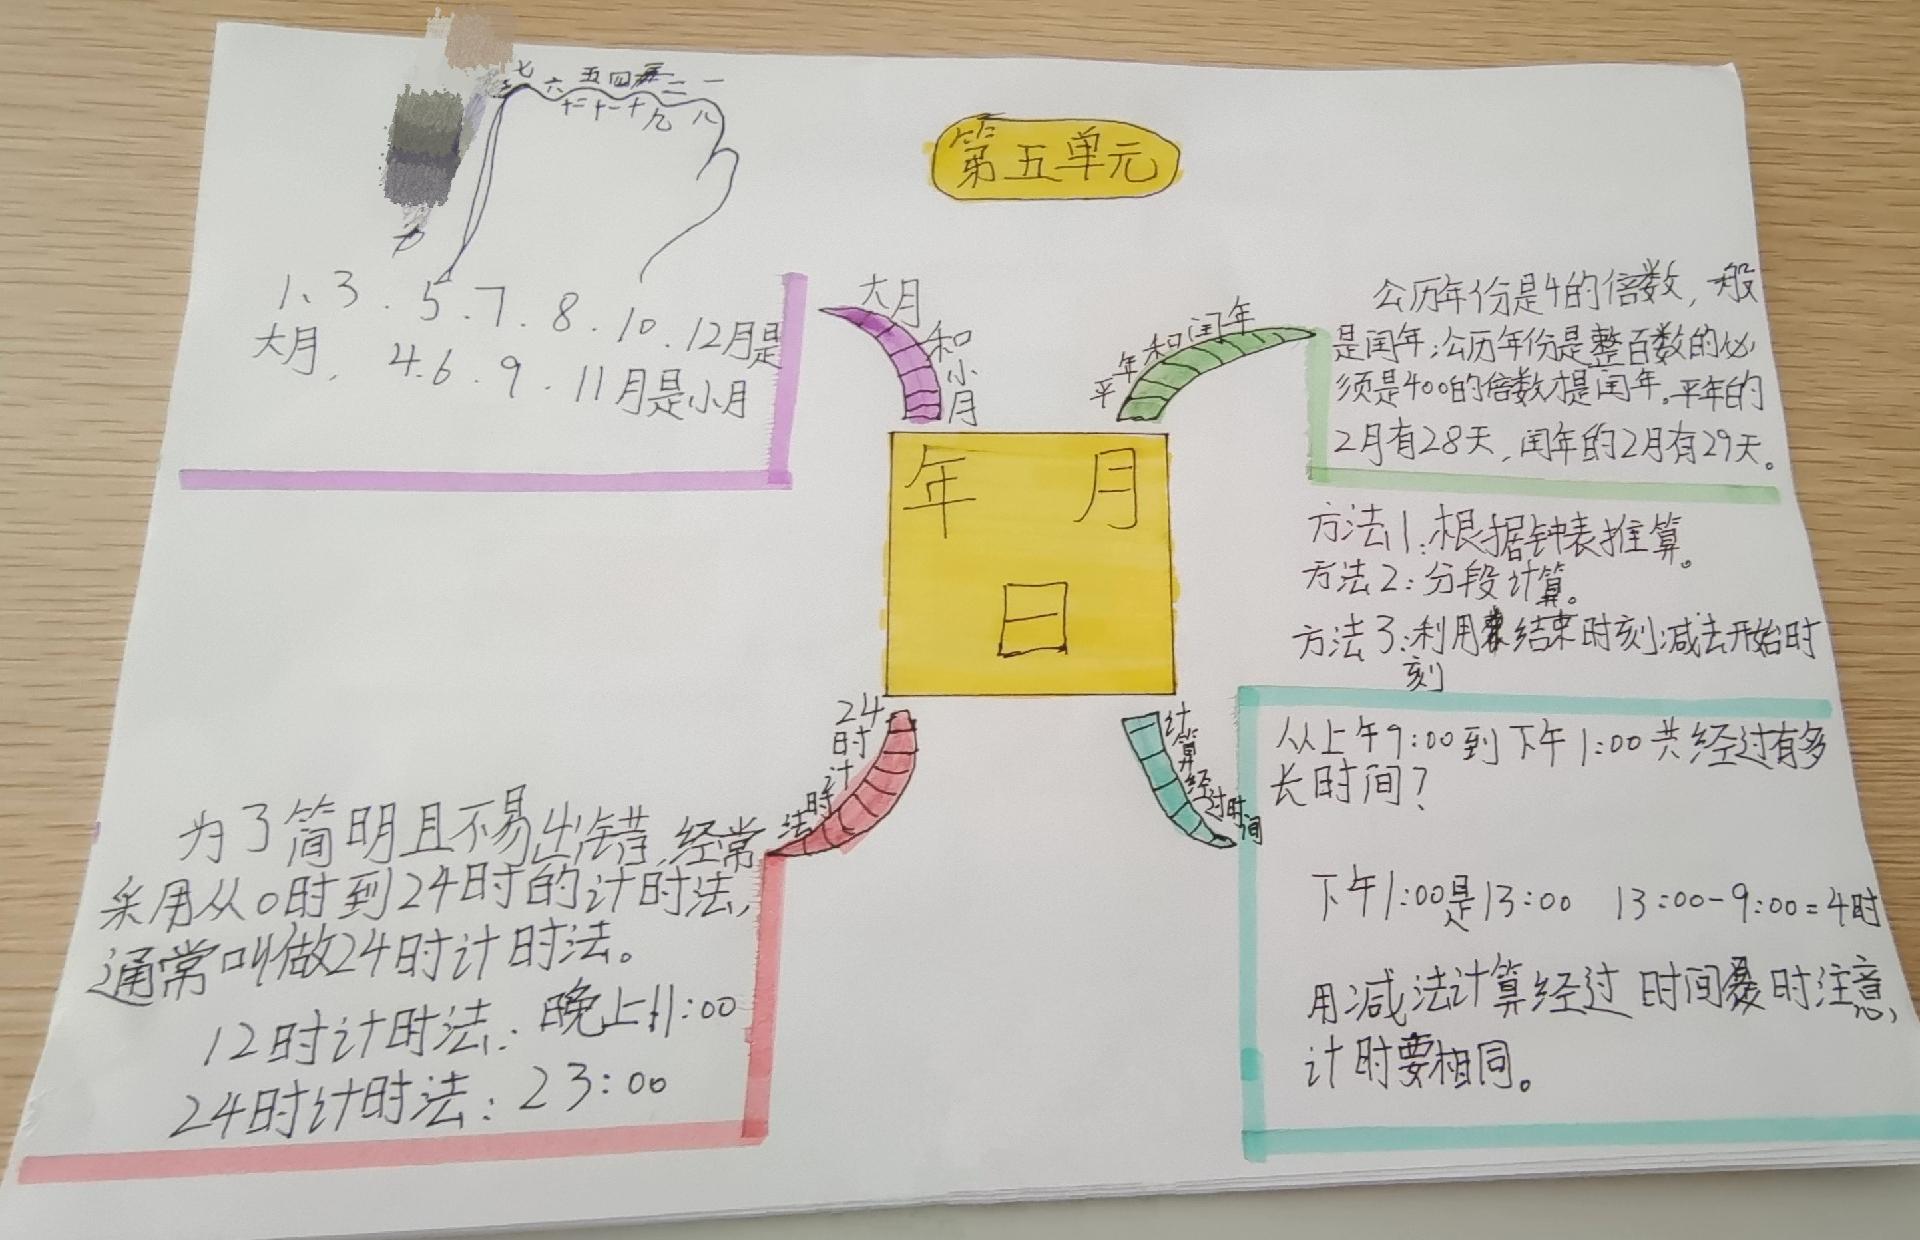 第五单元
七 六 五 四 二 一
十二 十一 十 九 八
1、3.5.7.8.10.12月是
大月, 4.6.9.11月是小月
大月和小月
平年和闰年
公历年份是4的倍数,一般
是闰年;公历年份是整百数的必
须是400的倍数才是闰年。平年的
2月有28天,闰年的2月有29天。
年 月
日
方法1:根据钟表推算。
方法2:分段计算。
方法3:利用结束时刻减去开始时
刻
24时计时法
计算经过时间
从上午9:00到下午1:00共经过有多
长时间?
下午1:00是13:00 13:00-9:00=4时
用减法计算经过时间时注意,
计时要相同。
为了简明且不易出错,经常
采用从0时到24时的计时法,
通常叫做24时计时法。
12时计时法:晚上11:00
24时计时法:23:00